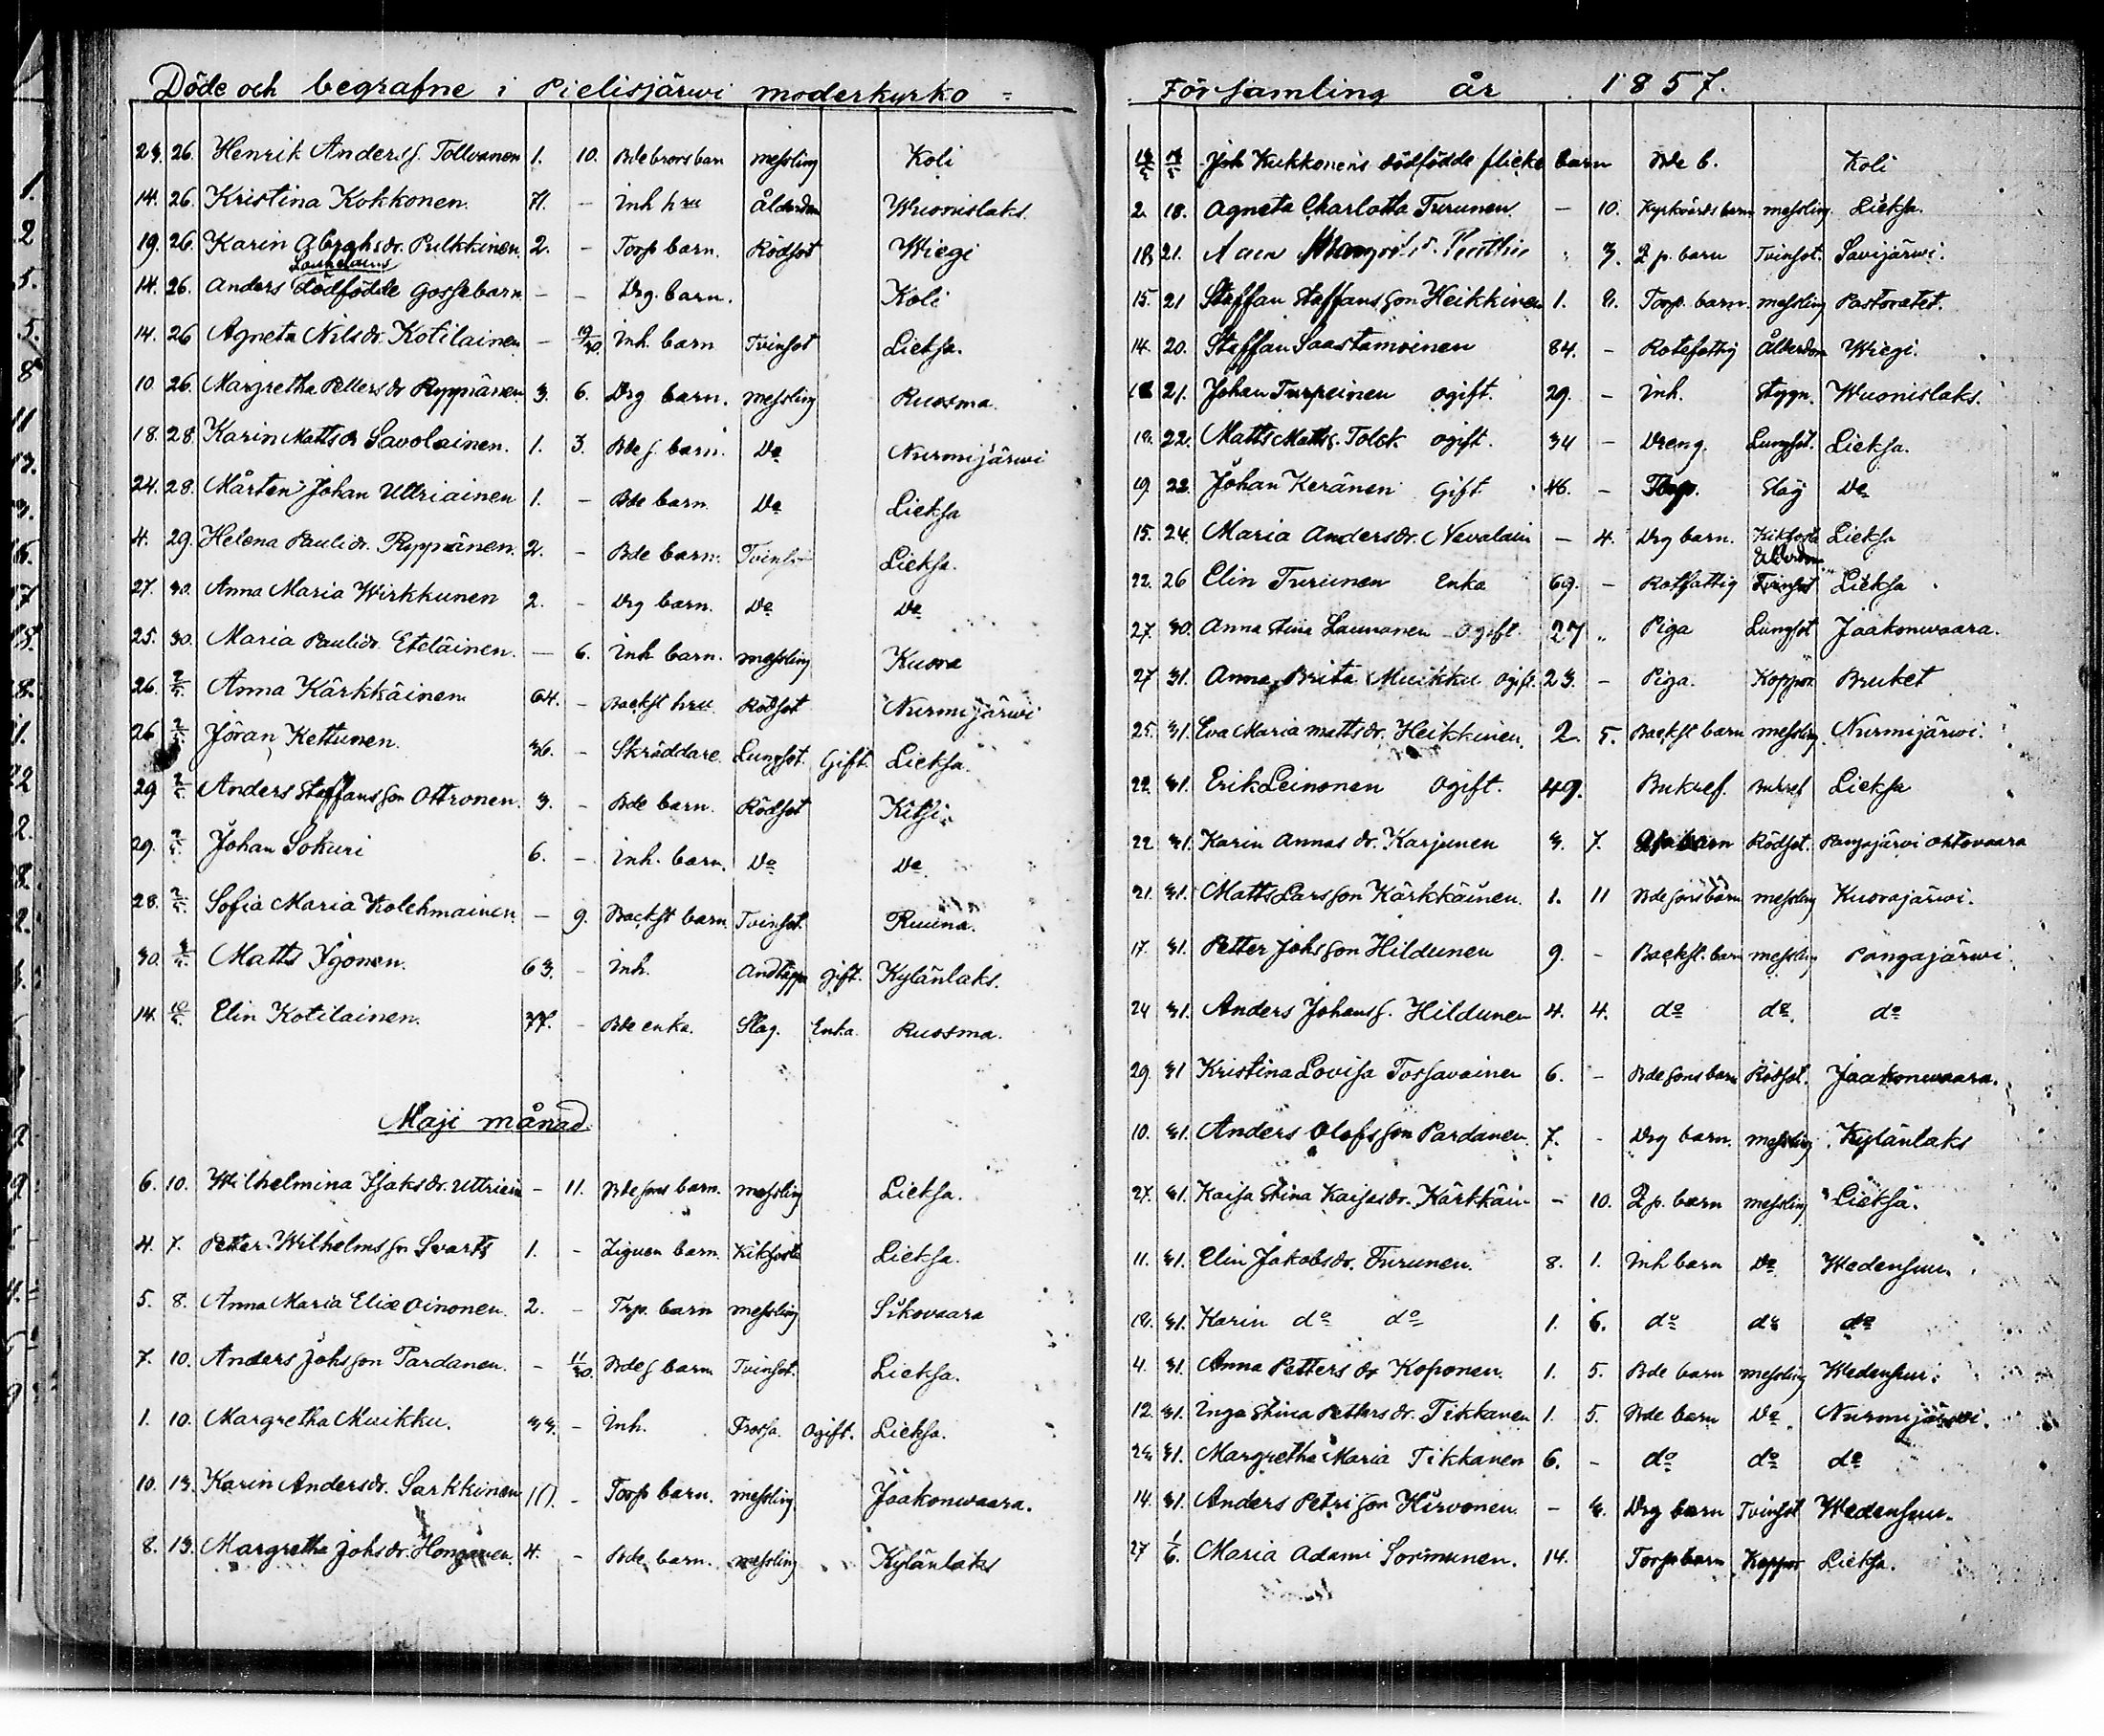 Döde och begrafne i Pielisjärwi moderkyrko =
23. 26. Henrik Anders s. Tollvanen 1. 10. Bde brors barn messling Koli
14. 26. Kristina Kokkonen. 71. - Inh hru Ålderdom Wuonislaks.
19. 26. Karin Abrahsdr. Pulkkinen. 2. - Torp barn. Rödsot Wiegi
14. 26. Anders dödfödde gossebarn - - Drg. barn. Koli
14. 26 Agneta Nilsdr. Kotilainen - 19/30. Inh. barn Tvinsot Lieksa.
10 26. Margretha Pettersdr Ryppänen. 3. 6. Drg barn. messling Ruosma.
18. 28. Karin Mattsdr Savolainen. 1. 3. Bde s. barn. Do Nurmijärwi
24. 28. Mårten Johan Uttriainen 1. - Bde barn. Do Lieksa
4. 29. Helena Paulidr. Ryppänen. 2. - Bde barn. Tvinsot Lieksa.
27. 30. Anna Maria Wirkkunen 2. - Drg barn. Do Do
25. 30. Maria Paulidr. Eteläinen. - 6. Inh barn. messling Kuora
26. 2/5. Anna Kärkkäinen 64. - Backst hru Rödsot Nurmijärwi
26 2/5. Jöran Kettunen. 36. - Skräddare. Lungsot. Gift. Lieksa.
29 2/5. Anders Staffansson Ottronen. 3. - Bde barn. Rödsot Kitsi
29. 2/5. Johan Sokuri 6. - Inh. barn. Do Do
28. 2/5. Sofia Maria Kolehmainen - 9. Backst barn. Tvinsot. Ruuna.
30. 3/5. Matts Ygonen. 63. - Inh. Andtäppa gift. Kylänlaks.
14. 10/5. Elin Kotilainen. 77. - Bde enka. Slag. Enka. Ruosma.
Maji månad.
6. 10. Wilhelmina Isaksdr. Uttriain - 11. Bde sons barn. messling Lieksa.
4. 7. Petter Wilhelmsson Svarts 1. - Ziguen barn. Kikhosta Lieksa.
5. 8. Anna Maria Eliæ Oinonen. 2. - Trp. barn messling Sikovaara
7. 10. Anders Johsson Pardanen. - 11/30. Bde s barn Tvinsot. Lieksa.
1. 10. Margretha Muikku. 33. - Inh. Frossa. Ogift. Lieksa.
10. 13. Karin Andersdr. Sarkkinen - Torp barn. messling Jaakonwaara.
8. 13. Margretha Johsdr. Hongänen. 4. - Bde barn. messling Kylänlaks
Församling år 1857.
Joh Kukkonens dödfödde flicke barn Bde b. Koli
2. 18. Agneta Charlotta Turunen. - 10. Kyrkvärds barn messling. Lieksa.
18 21. 3. Z p. barn Tvinsot. Savijärwi.
15. 21 Staffan Staffansson Heikkinen 1. 9. Torp. barn. messling Pastoratet.
14. 20. Staffan Saastamoinen 84. - Rotefattig Ålderdom Wiegi.
21. Johan Turpeinen ogift. 29. - Inh. Stygn. Wuonislaks.
19. 22. Matts Matts s. Tolck ogift. 34 - Dreng. Lungsot. Lieksa.
19 22. Johan Keränen Gift 46. - Torp. Slag Do
15. 24. Maria Andersdr. Nevalain - 4. Drg barn. Kikhosta Lieksa
22. 26 Elin Turunen Enka 69. - Rotfattig Ålderdom Tvinsot Lieksa
27. 30. Anna Stina Launonen ogift 27 " Piga Lungsot Jaakonwaara.
27 31. Anna Brita Muikku ogift. 23. - Piga. Koppor Bruket
25. 31. Eva Maria Mattsdr. Heikkinen. 2. 5. Backst barn messling Nurmijärwi.
22. 31. Erik Leinonen Ogift. 49. Bukref. Bukref Lieksa
22 31. Karin Annasdr. Karjunen 3. 7. Rödsot. Pangajärvi Ohtovaara
21. 31. Matts Larsson Kärkkäinen. 1. 11 Bde sons barn messling Kuorajärwi.
17. 31. Petter Johsson Hildunen 9. - Backst. barn messling Pangajärwi
24 31. Anders Johanss. Hildunen 4. 4. do do do
29. 31 Kristina Lovisa Tossavainen 6. - Bde sons barn Rödsot. Jaakonwaara.
10. 31. Anders Olofsson Pardanen. 7. - Drg barn. messling Kylänlaks
27. 31. Kaisa Stina Kaisasdr. Kärkkäin - 10. Z p. barn messling Lieksa.
11. 31. Elin Jakobsdr. Turunen. 8. 1. Inh barn Do Wedensuu.
19. 31. Karin do do 1. 6. do do do
4. 31. Anna Petters dr Koponen. 1. 5. Bde barn messling Wedensuu.
12. 31. Inga Stina Pettersdr. Tikkanen 1. 5. Bde barn Do Nurmijärwi.
31. Margretha Maria Tikkanen 6. - do do do
14. 31. Anders Petrisson Hirvonen. - Drg barn Tvinsot Wedensuu.
27 1/6. Maria Adami Sormunen. 14. Torp barn Koppor Lieksa.